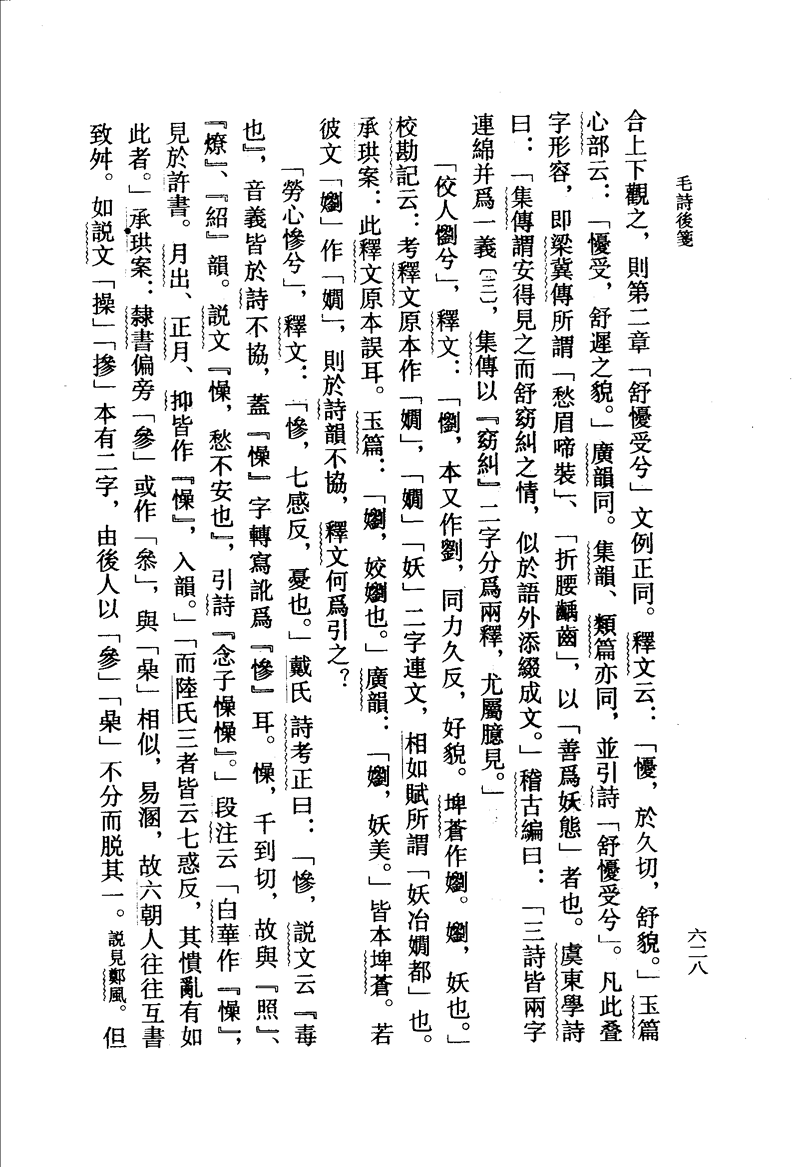 毛詩後箋
六二八
合上下觀之，則第二章「舒懮受兮」文例正同。釋文云：「懮，於久切，舒貌。」玉篇
心部云：「懮受，舒遲之貌。」廣韻同。集韻、類篇亦同，並引詩「舒懮受兮」。凡此叠
字形容，即梁冀傳所謂「愁眉啼裝」、「折腰齲齒」，以「善爲妖態」者也。虞東學詩
曰：「集傳謂安得見之而舒窈糾之情，似於語外添綴成文。」稽古編曰：「三詩皆兩字
連綿并爲一義〔三〕，集傳以『窈糾』二字分爲兩釋，尤屬臆見。」
「佼人懰兮」，釋文：「懰，本又作劉，同力久反，好貌。埤蒼作嬼。嬼，妖也。」
校勘記云：考釋文原本作「嫺」，「嫺」「妖」二字連文，相如賦所謂「妖冶嫺都」也。
承珙案：此釋文原本誤耳。玉篇：「嬼，姣嬼也。」廣韻：「嬼，妖美。」皆本埤蒼。若
彼文「嬼」作「嫺」，則於詩韻不協，釋文何爲引之？
「勞心慘兮」，釋文：「慘，七感反，憂也。」戴氏詩考正曰：「慘，説文云『毒
也』，音義皆於詩不協，蓋『懆』字轉寫訛爲『慘』耳。懆，千到切，故與『照』、
『燎』、『紹』韻。説文『懆，愁不安也』，引詩『念子懆懆』。」段注云「白華作『懆』，
見於許書。月出、正月、抑皆作『懆』，入韻。」「而陸氏三者皆云七惑反，其憒亂有如
此者。」承珙案：隸書偏旁「參」或作「叅」，與「喿」相似，易溷，故六朝人往往互書
致舛。如説文「操」「摻」本有二字，由後人以「參」「喿」不分而脱其一。説見鄭風。但